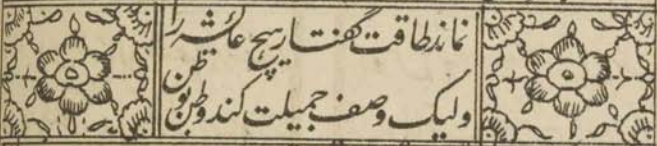 نماند طاقت گفتار هیچ عائشه را
ولیک وصف جمیلت کند وطن بوطن